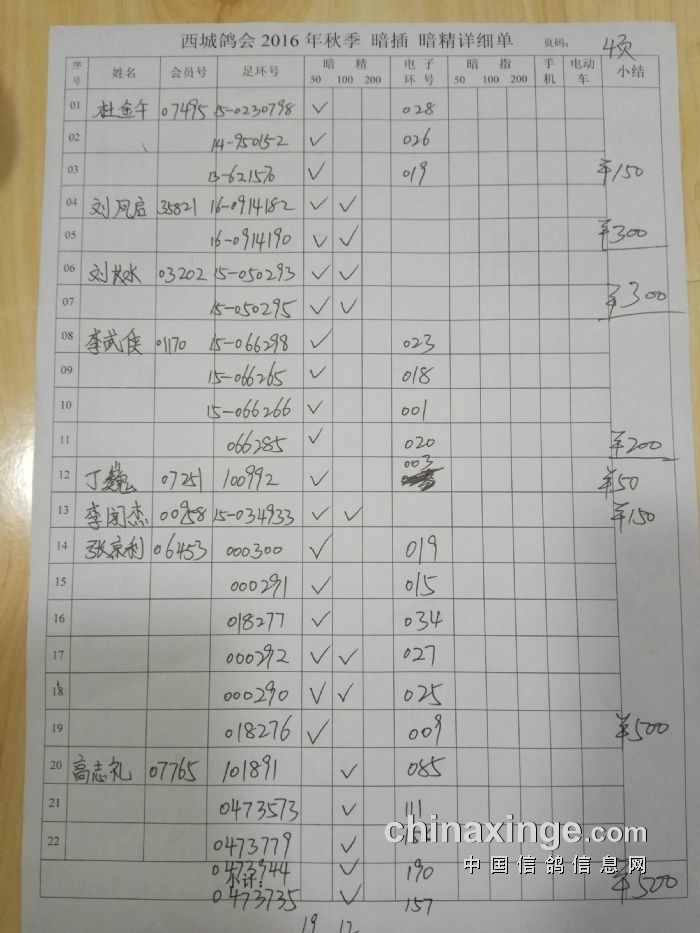 西城鸽会 2016 年秋季 暗插 暗精详细单 页码: 4页
序号 姓名 会员号 足环号 暗 精 电子环号 暗 指 手机 电动车 小结
50 100 200 50 100 200
01 杜金午 07495 15-0230798 ✓ 028
02 14-950152 ✓ 026
03 13-621570 ✓ 019 ¥150
04 刘凤启 35821 16-0914182 ✓ ✓
05 16-0914190 ✓ ✓ ¥300
06 刘 水 03202 15-050293 ✓ ✓
07 15-050295 ✓ ✓ ¥300
08 李武俊 01170 15-066298 ✓ 023
09 15-066265 ✓ 018
10 15-066266 ✓ 001
11 066285 ✓ 020 ¥200
12 丁巍 07251 100992 ✓ 003 ¥50
13 李国杰 00958 15-034933 ✓ ✓ ¥150
14 张京利 06453 000300 ✓ 019
15 000291 ✓ 015
16 018277 ✓ 034
17 000292 ✓ ✓ 027
18 000290 ✓ ✓ 025
19 018276 ✓ 009 ¥500
20 高志礼 07765 101891 ✓ 085
21 0473573 ✓ 111
22 0473779 ✓
chinaxinge.com
0473944 ✓ 190
中国信鸽信息网
小计: ¥500
0473735 ✓ 157
19 12